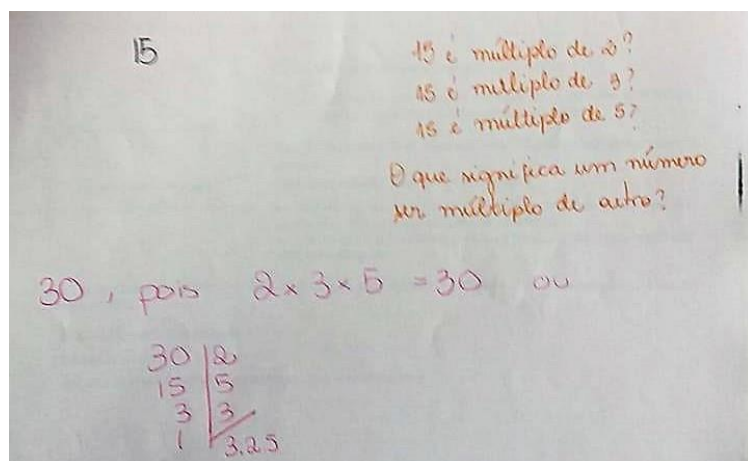 15
15 é múltiplo de 2?
15 é múltiplo de 3?
15 é múltiplo de 5?
O que significa um número
ser múltiplo de outro?
30, pois 2 x 3 x 5 = 30 ou
30 | 2
15 | 5
3 | 3
1 | 3.2.5